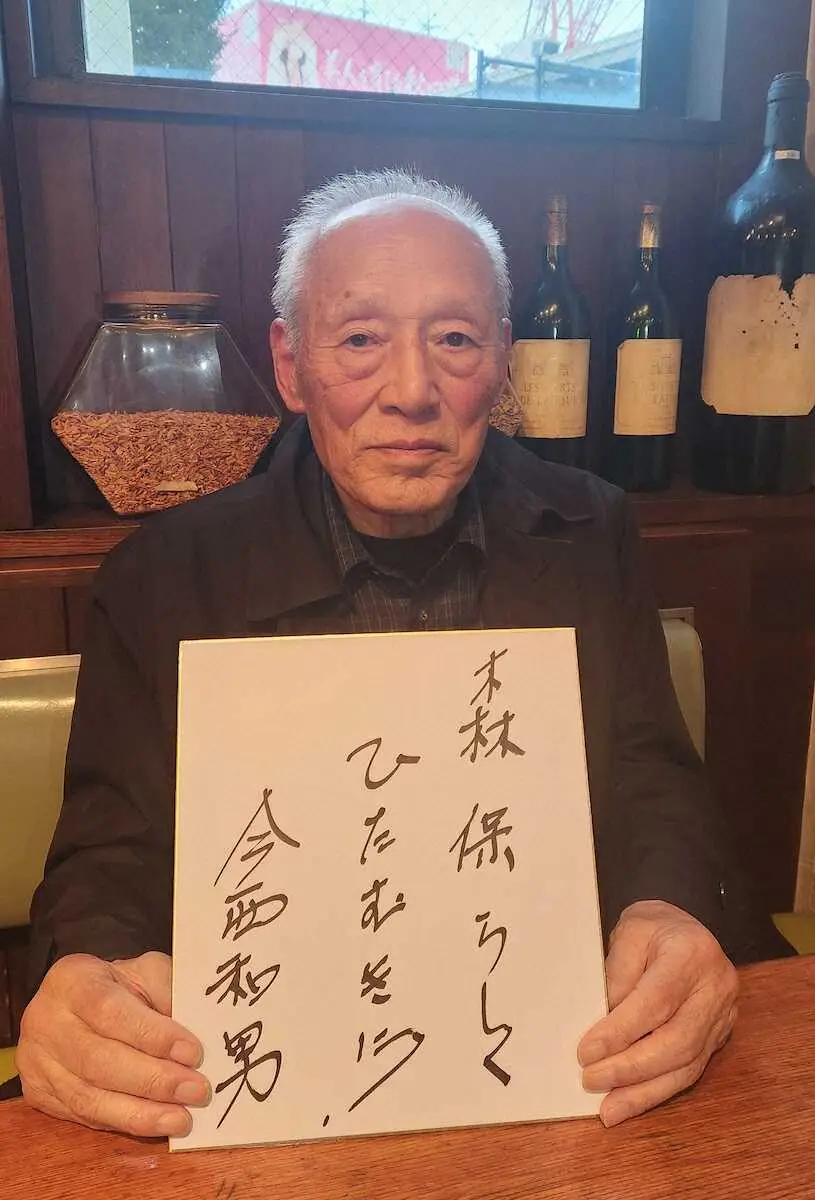 森保らしく
ひたむきに!
今西和男
LES FORTS
DE LATOUR